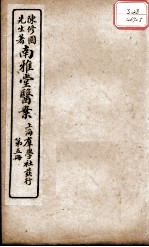 陳修園
先生著
南雅堂醫案
上海羣學社發行
第五冊